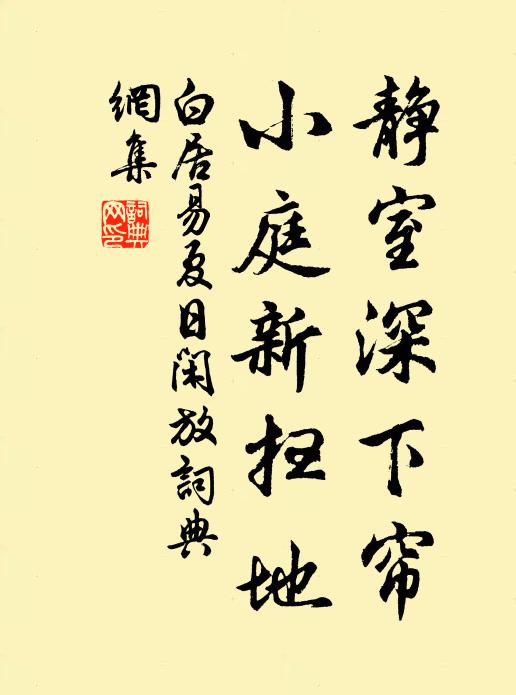 静室深下帘
小庭新扫地
白居易夏日閑放詞典
網集
詞典
网印